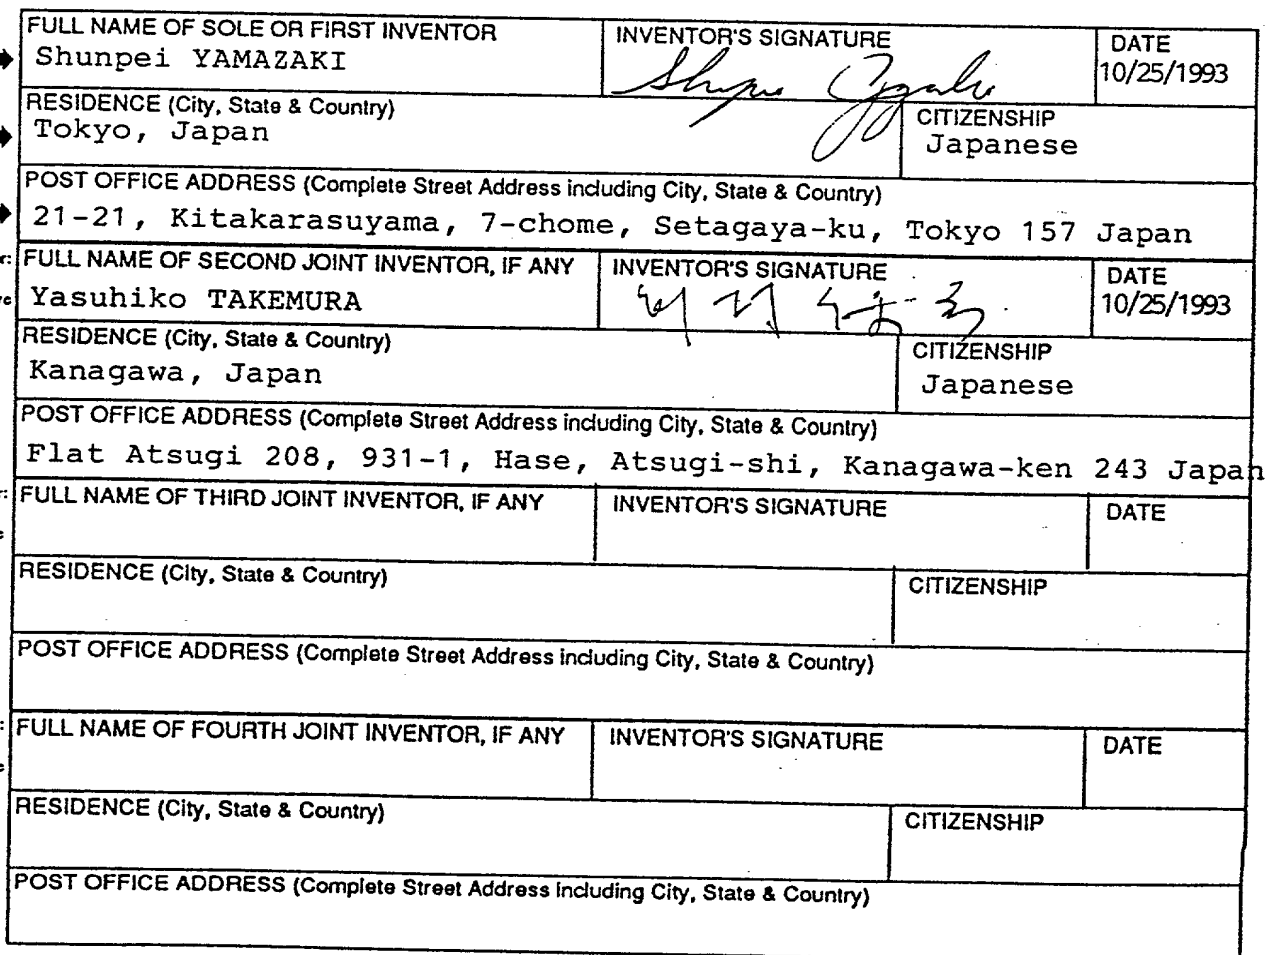 FULL NAME OF SOLE OR FIRST INVENTOR
Shunpei YAMAZAKI
INVENTOR'S SIGNATURE
DATE
10/25/1993
RESIDENCE (City, State & Country)
Tokyo, Japan
CITIZENSHIP
Japanese
POST OFFICE ADDRESS (Complete Street Address including City, State & Country)
21-21, Kitakarasuyama, 7-chome, Setagaya-ku, Tokyo 157 Japan
FULL NAME OF SECOND JOINT INVENTOR, IF ANY
Yasuhiko TAKEMURA
INVENTOR'S SIGNATURE
DATE
10/25/1993
RESIDENCE (City, State & Country)
Kanagawa, Japan
CITIZENSHIP
Japanese
POST OFFICE ADDRESS (Complete Street Address including City, State & Country)
Flat Atsugi 208, 931-1, Hase, Atsugi-shi, Kanagawa-ken 243 Japan
FULL NAME OF THIRD JOINT INVENTOR, IF ANY
INVENTOR'S SIGNATURE
DATE
RESIDENCE (City, State & Country)
CITIZENSHIP
POST OFFICE ADDRESS (Complete Street Address including City, State & Country)
FULL NAME OF FOURTH JOINT INVENTOR, IF ANY
INVENTOR'S SIGNATURE
DATE
RESIDENCE (City, State & Country)
CITIZENSHIP
POST OFFICE ADDRESS (Complete Street Address including City, State & Country)